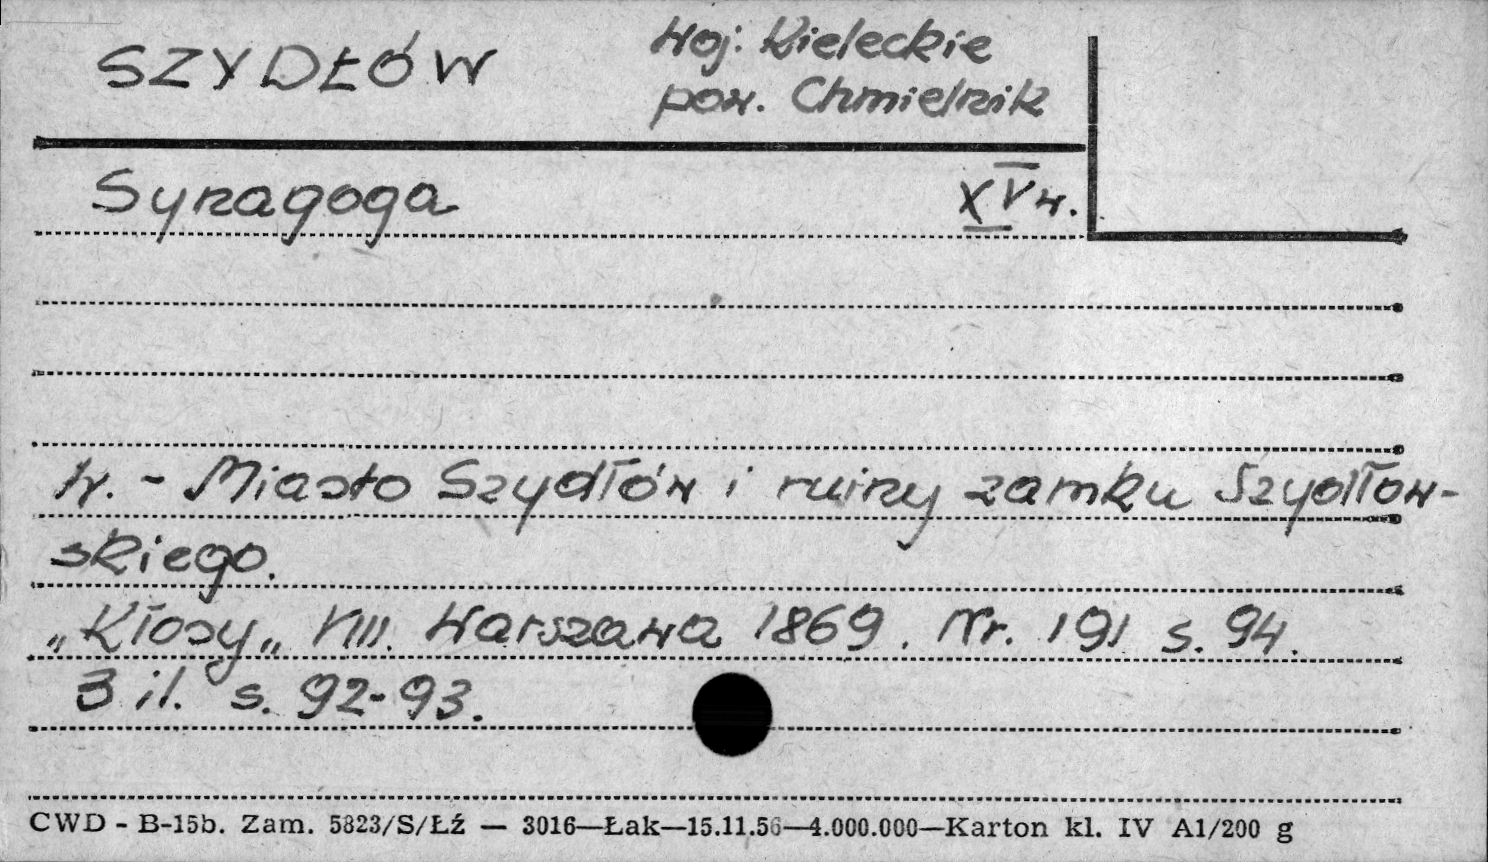 SZYDŁÓW
woj. Kieleckie
pow. Chmielnik
Synagoga XV w.
W. - Miasto Szydłów i ruiny zamku Szydłow-
skiego.
„Kłosy„ VIII. Warszawa 1869. Nr. 191 s. 94.
3 il. s. 92-93.
CWD - B-15b. Zam. 5823/S/Łź — 3016—Łak—15.11.56—4.000.000—Karton kl. IV A1/200 g